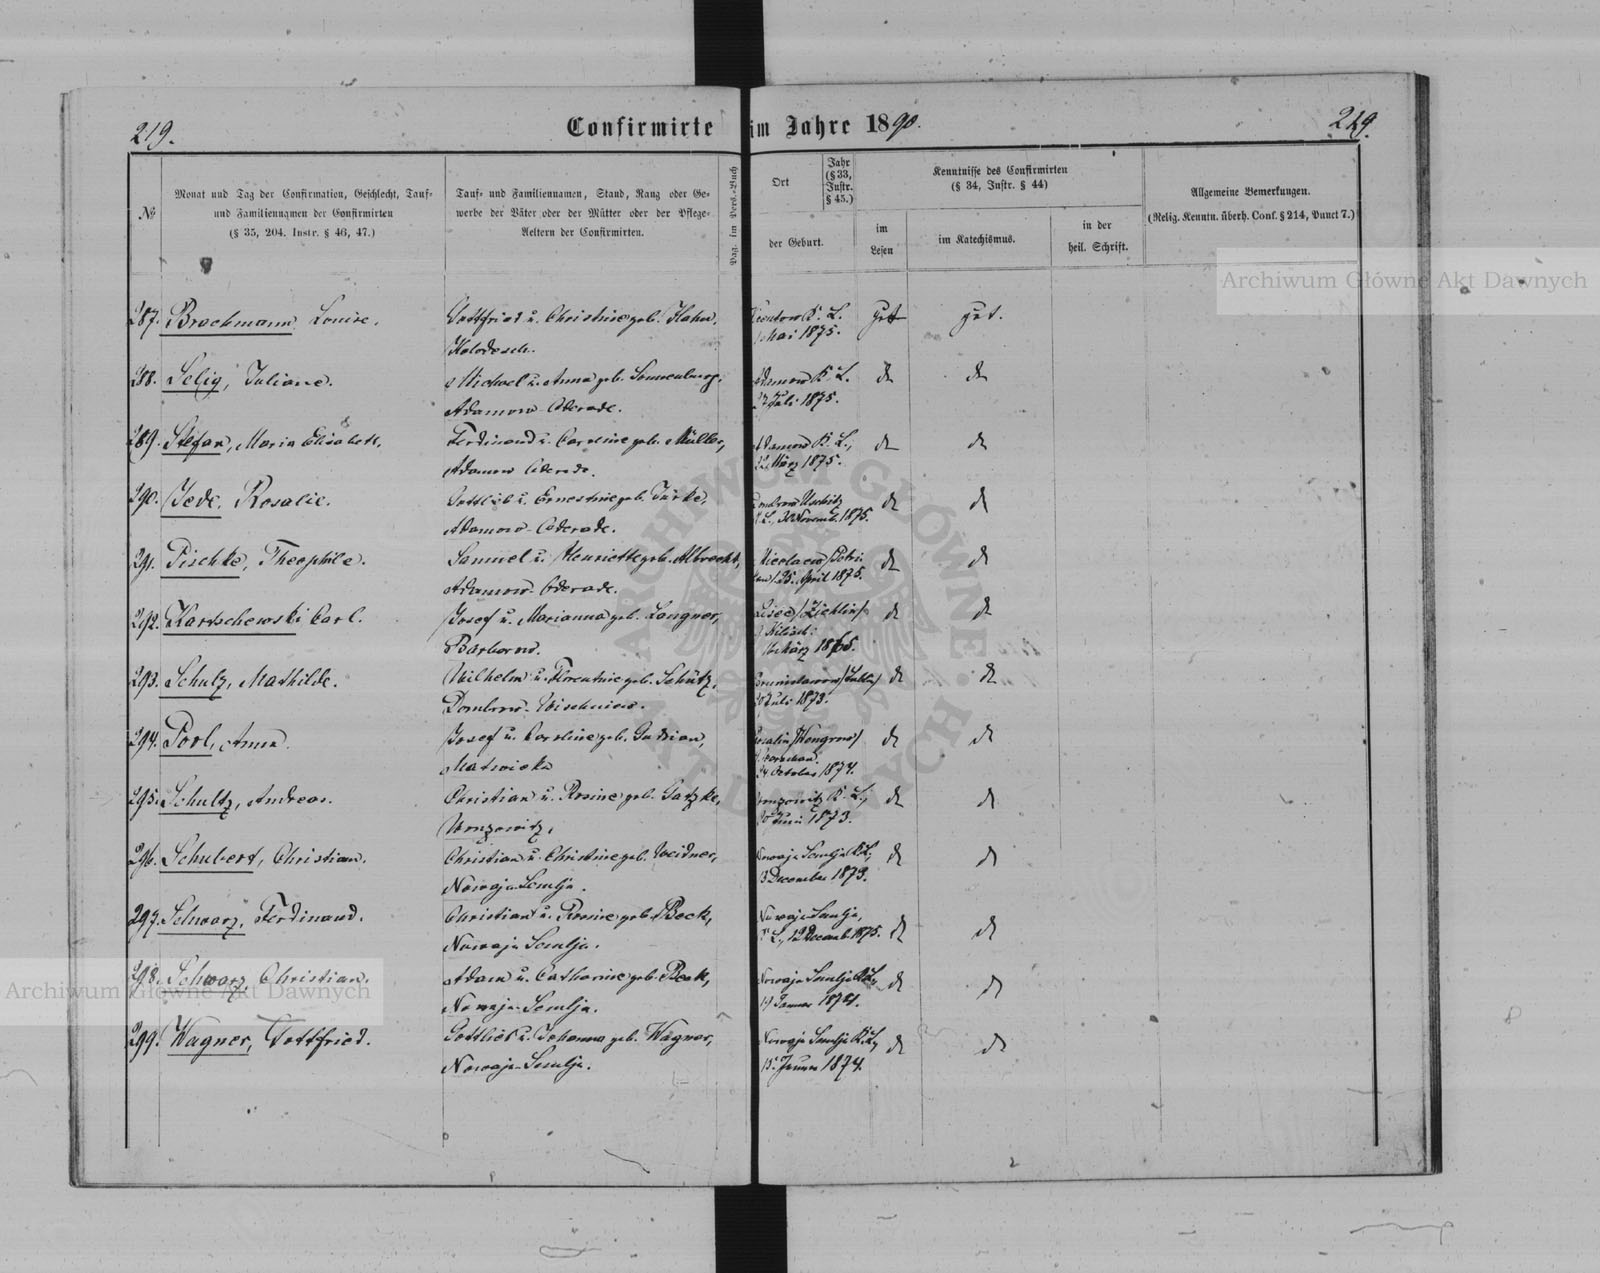 219.
Confirmirte im Jahre 1890.
219.
№
Monat und Tag der Confirmation, Geschlecht, Tauf-
und Familiennamen der Confirmirten
(§ 35, 204. Instr. § 46, 47.)
Tauf- und Familiennamen, Stand, Rang oder Ge-
werbe der Väter oder der Mütter oder der Pflege-
Aeltern der Confirmirten.
Pag. im Pers.-Buch
Ort
Jahr
(§ 33,
Instr.
§ 45.)
der Geburt.
Kenntnisse des Confirmirten
(§ 34, Instr. § 44)
im
Lesen
im Katechismus.
in der
heil. Schrift.
Allgemeine Bemerkungen.
(Relig. Kenntn. überh. Conf. § 214, Punct 7.)
287. Brachmann Louise. Gottfried u. Christine geb. Hahn. K. L. gut gut.
Mai 1875.
288. Selig, Juliane. Michael u. Anna geb. Sonnenburg, Adamow K. L. do do
Adamow-Oderade. Juli 1875.
289. Stefan, Maria Elisabeth, Ferdinand u. Caroline geb. Müller, Adamow K. L., do do
Adamow Oderade. März 1875.
290. Jede. Rosalie. Gottlieb u. Ernestine geb. Türke, do do
Adamow-Oderade. K. L., 30 Novemb. 1875.
291. Pischke, Theophile. Samuel u. Henriette geb. Albrecht, Nicolaew do do
Adamow-Oderade. 25. April 1875.
292. Kartschewski Carl. Josef u. Marianna geb. Langner, do do
Barbarow. März
293. Schulz, Mathilde. Wilhelm u. Florentine geb. Schütz, do do
Dombrow. Juli 1873.
294. Pool, Anna. Josef u. Caroline geb. Gadrian, do do
October 1874.
295. Schultz, Andreas. Christian u. Rosine geb. Gatzke, K. L., do do
Juni 1873.
296. Schubert, Christian. Christian u. Christine geb. Weidner, Nowaja Semlja K. L., do do
Nowaja-Semlja. December 1873.
297. Schwarz, Ferdinand. Christian u. Rosine geb. Beck, Nowaja-Semlja, do do
Nowaja Semlja. K. L., 12 Decemb. 1875.
298. Schwarz, Christian. Adam u. Catharine geb. Beck, Nowaja Semlja K. L., do do
Nowaja-Semlja. 19 Januar 1874.
299. Wagner, Gottfried. Gottlieb u. Johanna geb. Wagner, Nowaja Semlja K. L., do do
Nowaja-Semlja. 15. Januar 1874.
Archiwum Główne Akt Dawnych
Archiwum Główne Akt Dawnych
ARCHIWUM GŁÓWNE AKT DAWNYCH